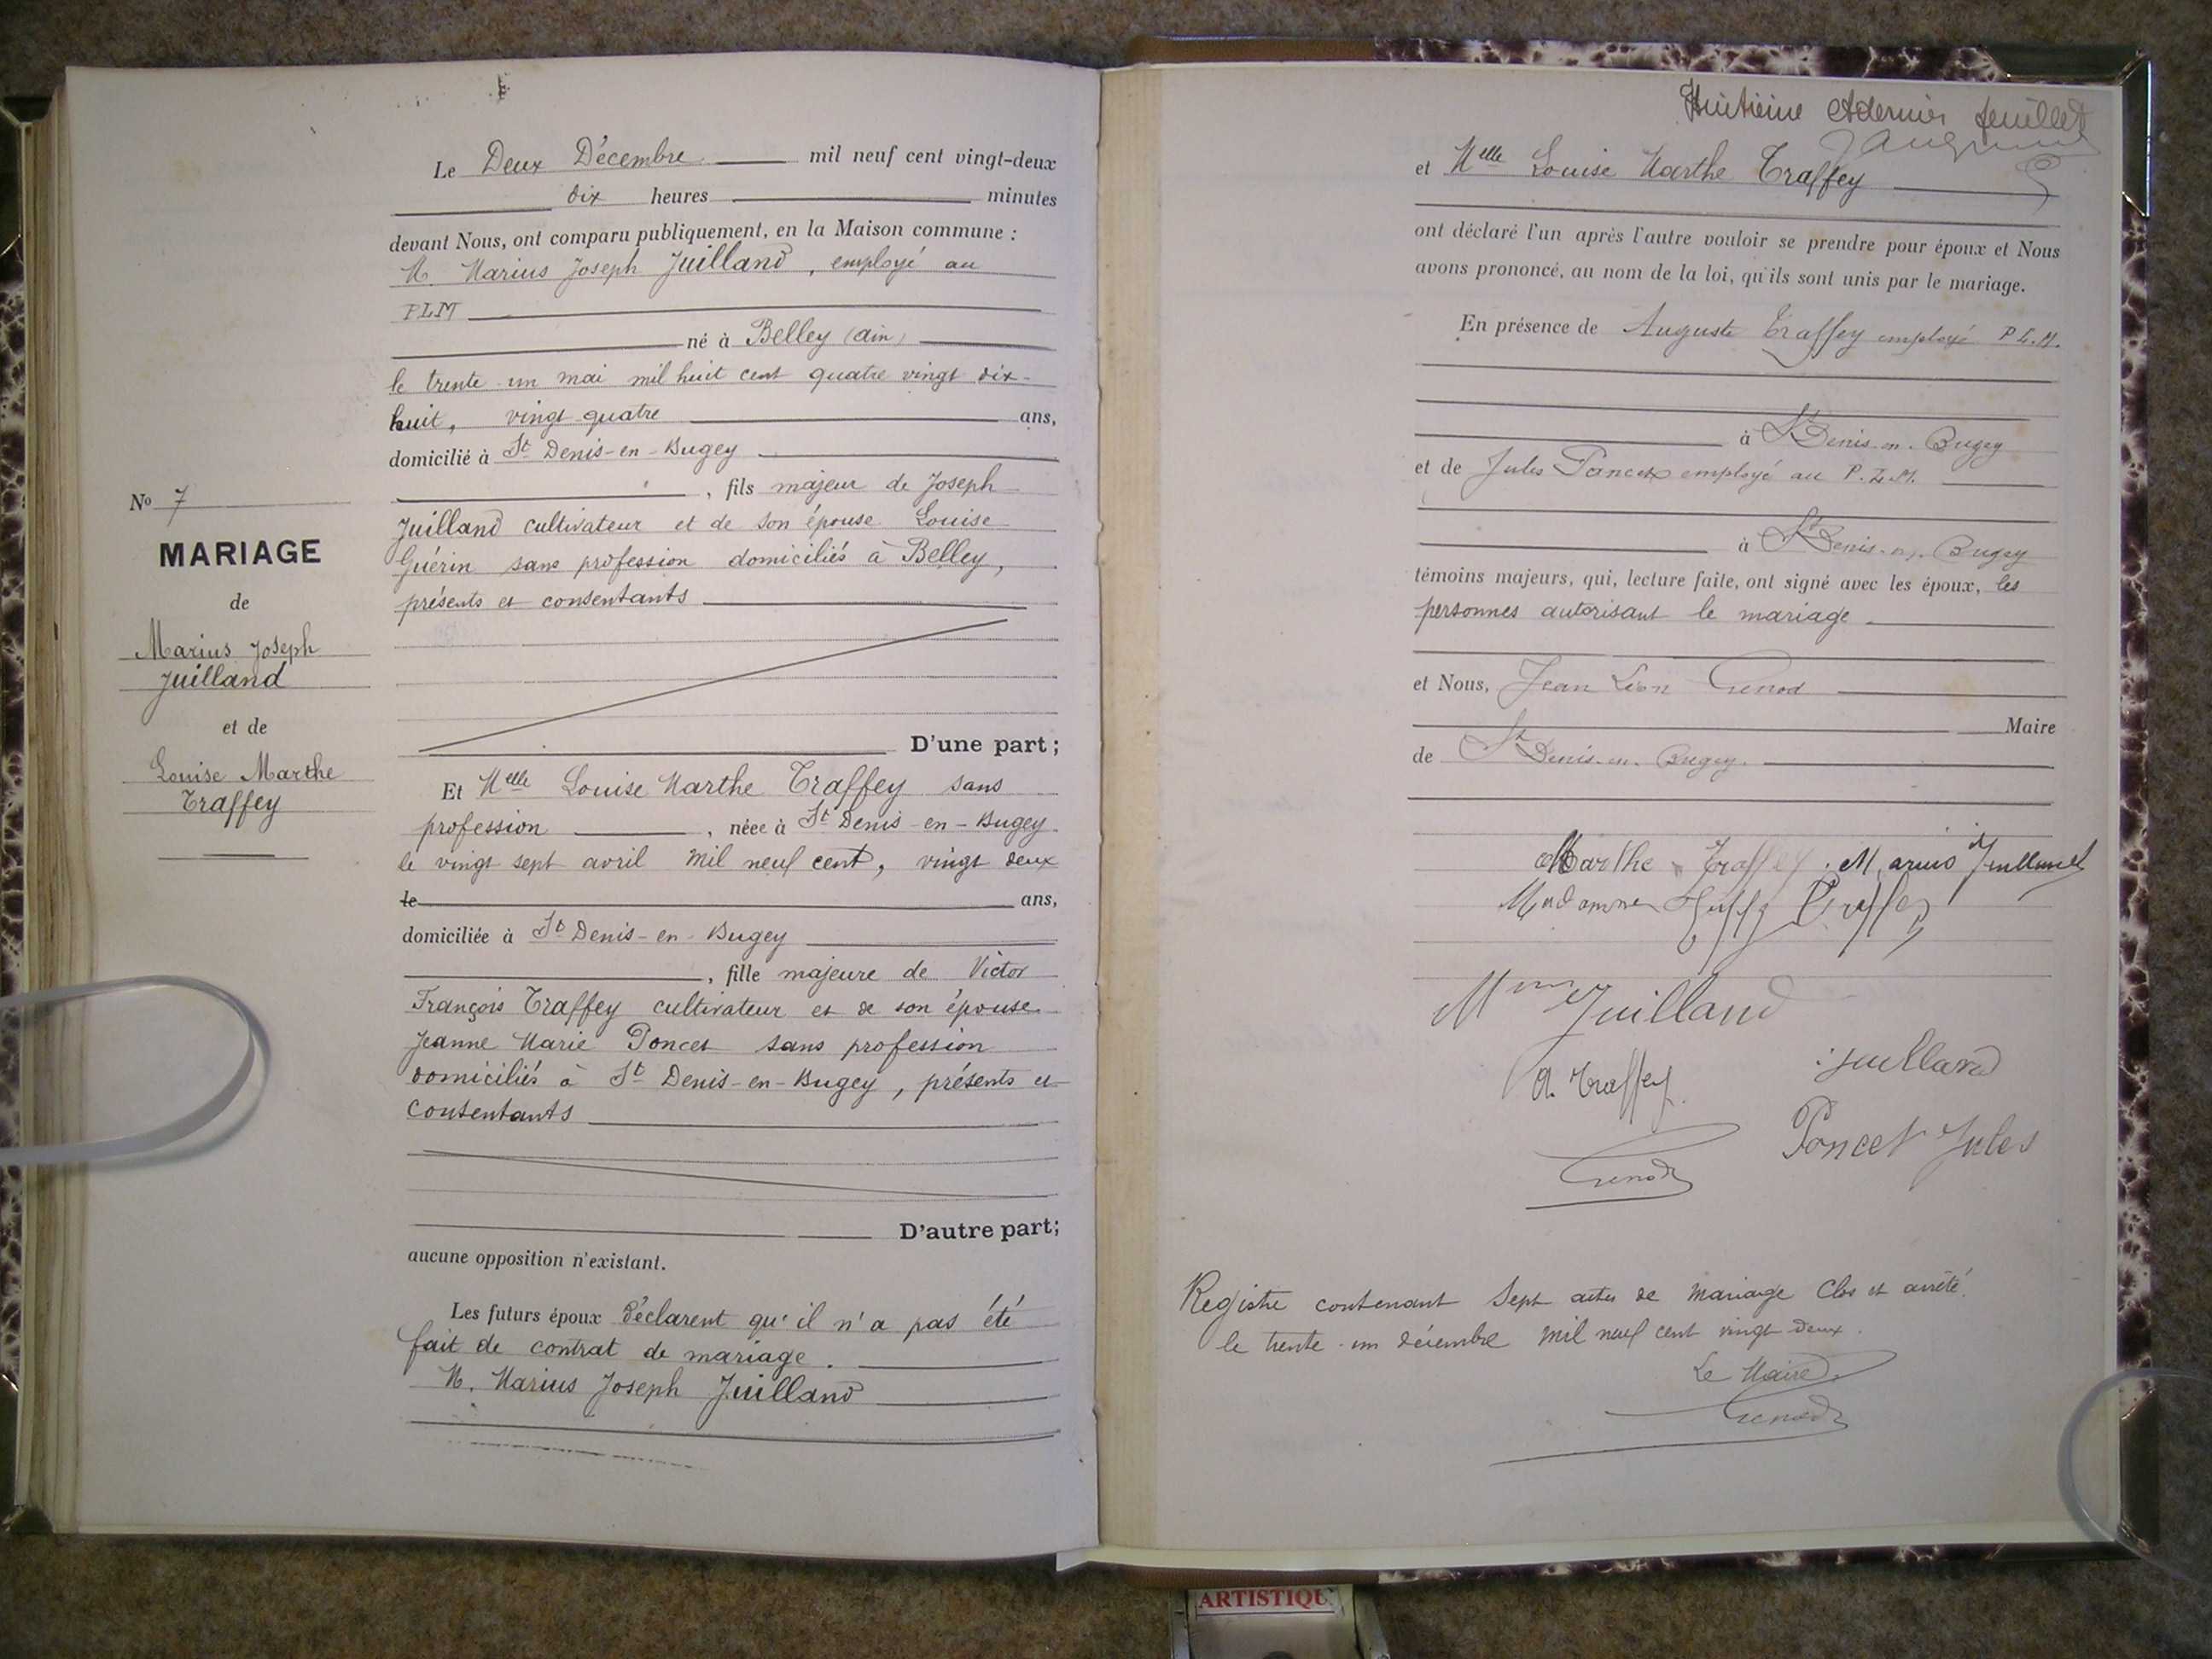 Le Deux Décembre mil neuf cent vingt-deux
dix heures minutes
devant Nous, ont comparu publiquement, en la Maison commune :
M. Marius Joseph Juilland, employé au
PLM
né à Belley (ain)
le trente un mai mil huit cent quatre vingt dix-
huit, vingt quatre ans,
domicilié à St Denis-en-Bugey
, fils majeur de Joseph
Juilland cultivateur et de son épouse Louise
Guérin sans profession domiciliés à Belley,
présents et consentants
D'une part ;
No 7
MARIAGE
de
Marius Joseph
Juilland
et de
Louise Marthe
Traffey
Et Melle Louise Marthe Traffey sans
profession , néee à St Denis-en-Bugey
le vingt sept avril mil neuf cent, vingt deux
le ans,
domiciliée à St Denis-en-Bugey
, fille majeure de Victor
François Traffey cultivateur et de son épouse
Jeanne Marie Poncet sans profession
domiciliés à St Denis-en-Bugey, présents et
consentants
D'autre part ;
aucune opposition n'existant.
Les futurs époux déclarent qu'il n'a pas été
fait de contrat de mariage.
M. Marius Joseph Juilland
Huitième et dernier feuillet
et Melle Louise Marthe Traffey
ont déclaré l'un après l'autre vouloir se prendre pour époux et Nous
avons prononcé, au nom de la loi, qu'ils sont unis par le mariage.
En présence de Auguste Traffey employé P.L.M.
à St Denis-en-Bugey
et de Jules Poncet employé au P.L.M.
à St Denis-en-Bugey
témoins majeurs, qui, lecture faite, ont signé avec les époux, les
personnes autorisant le mariage
et Nous, Jean Léon Grenod
Maire
de St Denis-en-Bugey.
Marthe Traffey Marius Juilland
Madame Traffey
Mme Juilland
Juilland
A. Traffey
Poncet Jules
Grenod
Registre contenant Sept actes de mariage Clos et arrêté
le trente-un décembre mil neuf cent vingt deux.
Le Maire
Grenod
ARTISTIQU